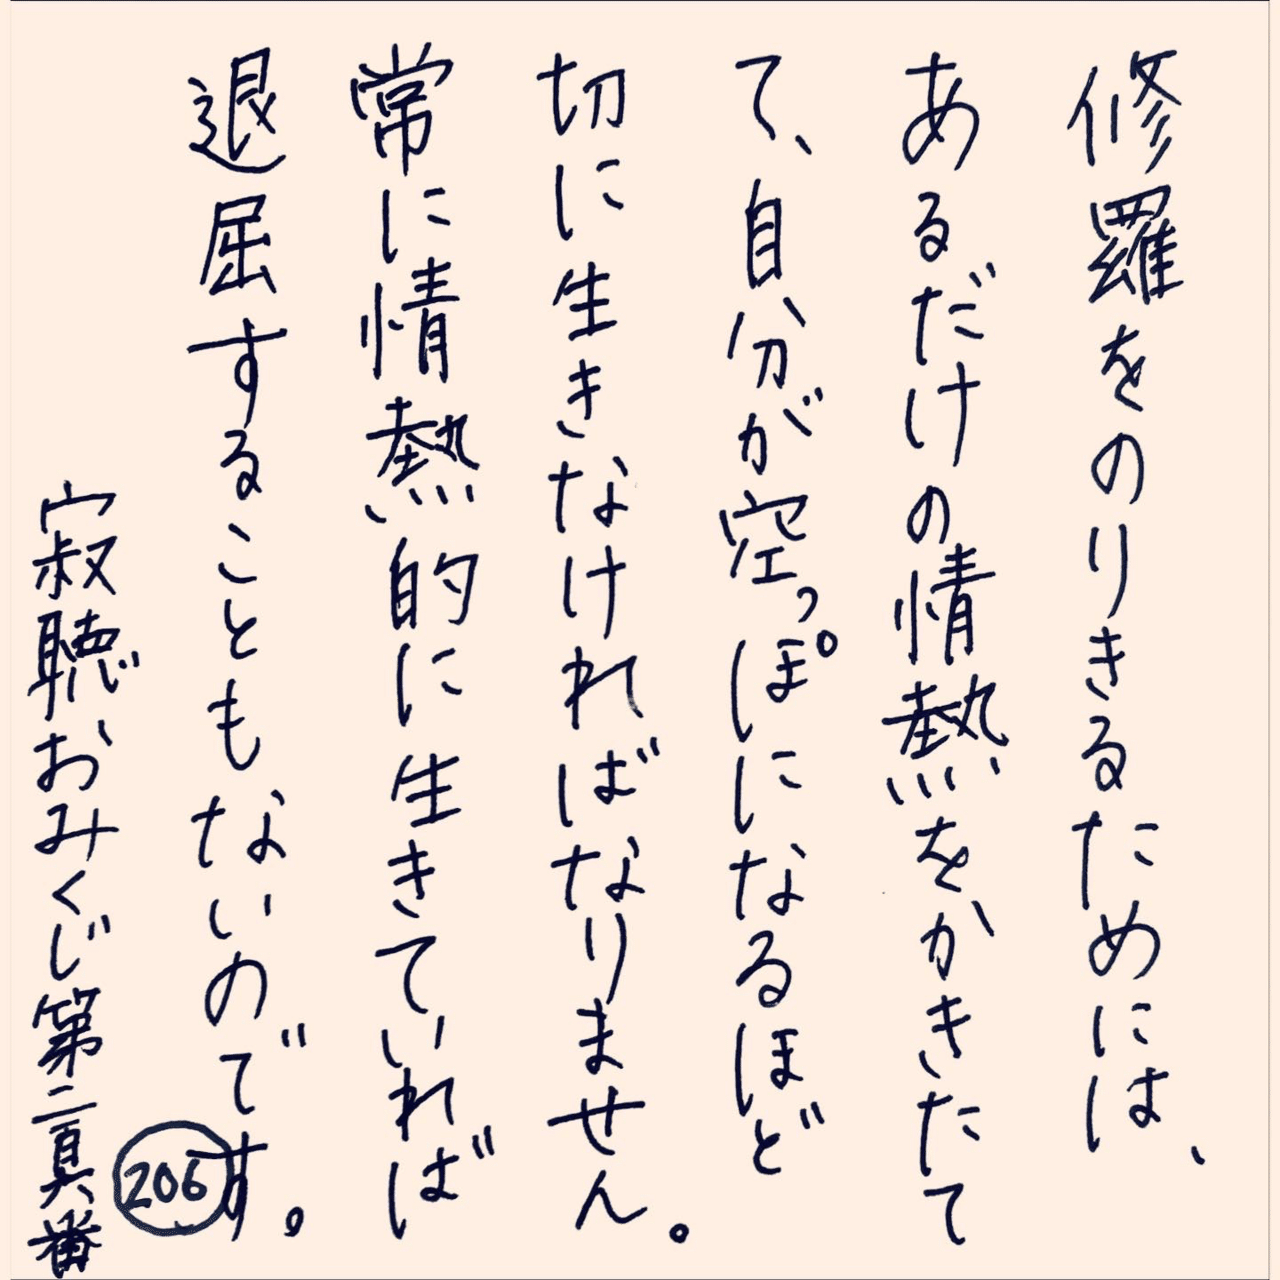 修羅をのりきるためには、
あるだけの情熱をかきたて
て、自分が空っぽになるほど
切に生きなければなりません。
常に情熱的に生きていれば
退屈することもないのです。
寂聴おみくじ第二真番
206